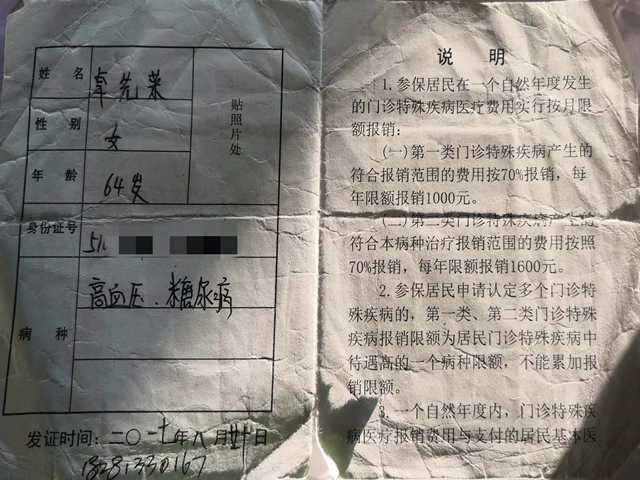 姓名 牟先菜
性别 女
年龄 64岁
身份证号 511
病种 高血压、糖尿病
贴照片处
发证时间：二〇一七年八月廿日
说明
1.参保居民在一个自然年度发生
的门诊特殊疾病医疗费用实行按月限
额报销：
(一)第一类门诊特殊疾病产生的
符合报销范围的费用按70%报销，每
年限额报销1000元。
(二)第二类门诊特殊疾病产生的
符合本病种治疗报销范围的费用按照
70%报销，每年限额报销1600元。
2.参保居民申请认定多个门诊特
殊疾病的，第一类、第二类门诊特殊
疾病报销限额为居民门诊特殊疾病中
待遇高的一个病种限额，不能累加报
销限额。
3.一个自然年度内，门诊特殊疾
病医疗报销费用与支付的居民基本医